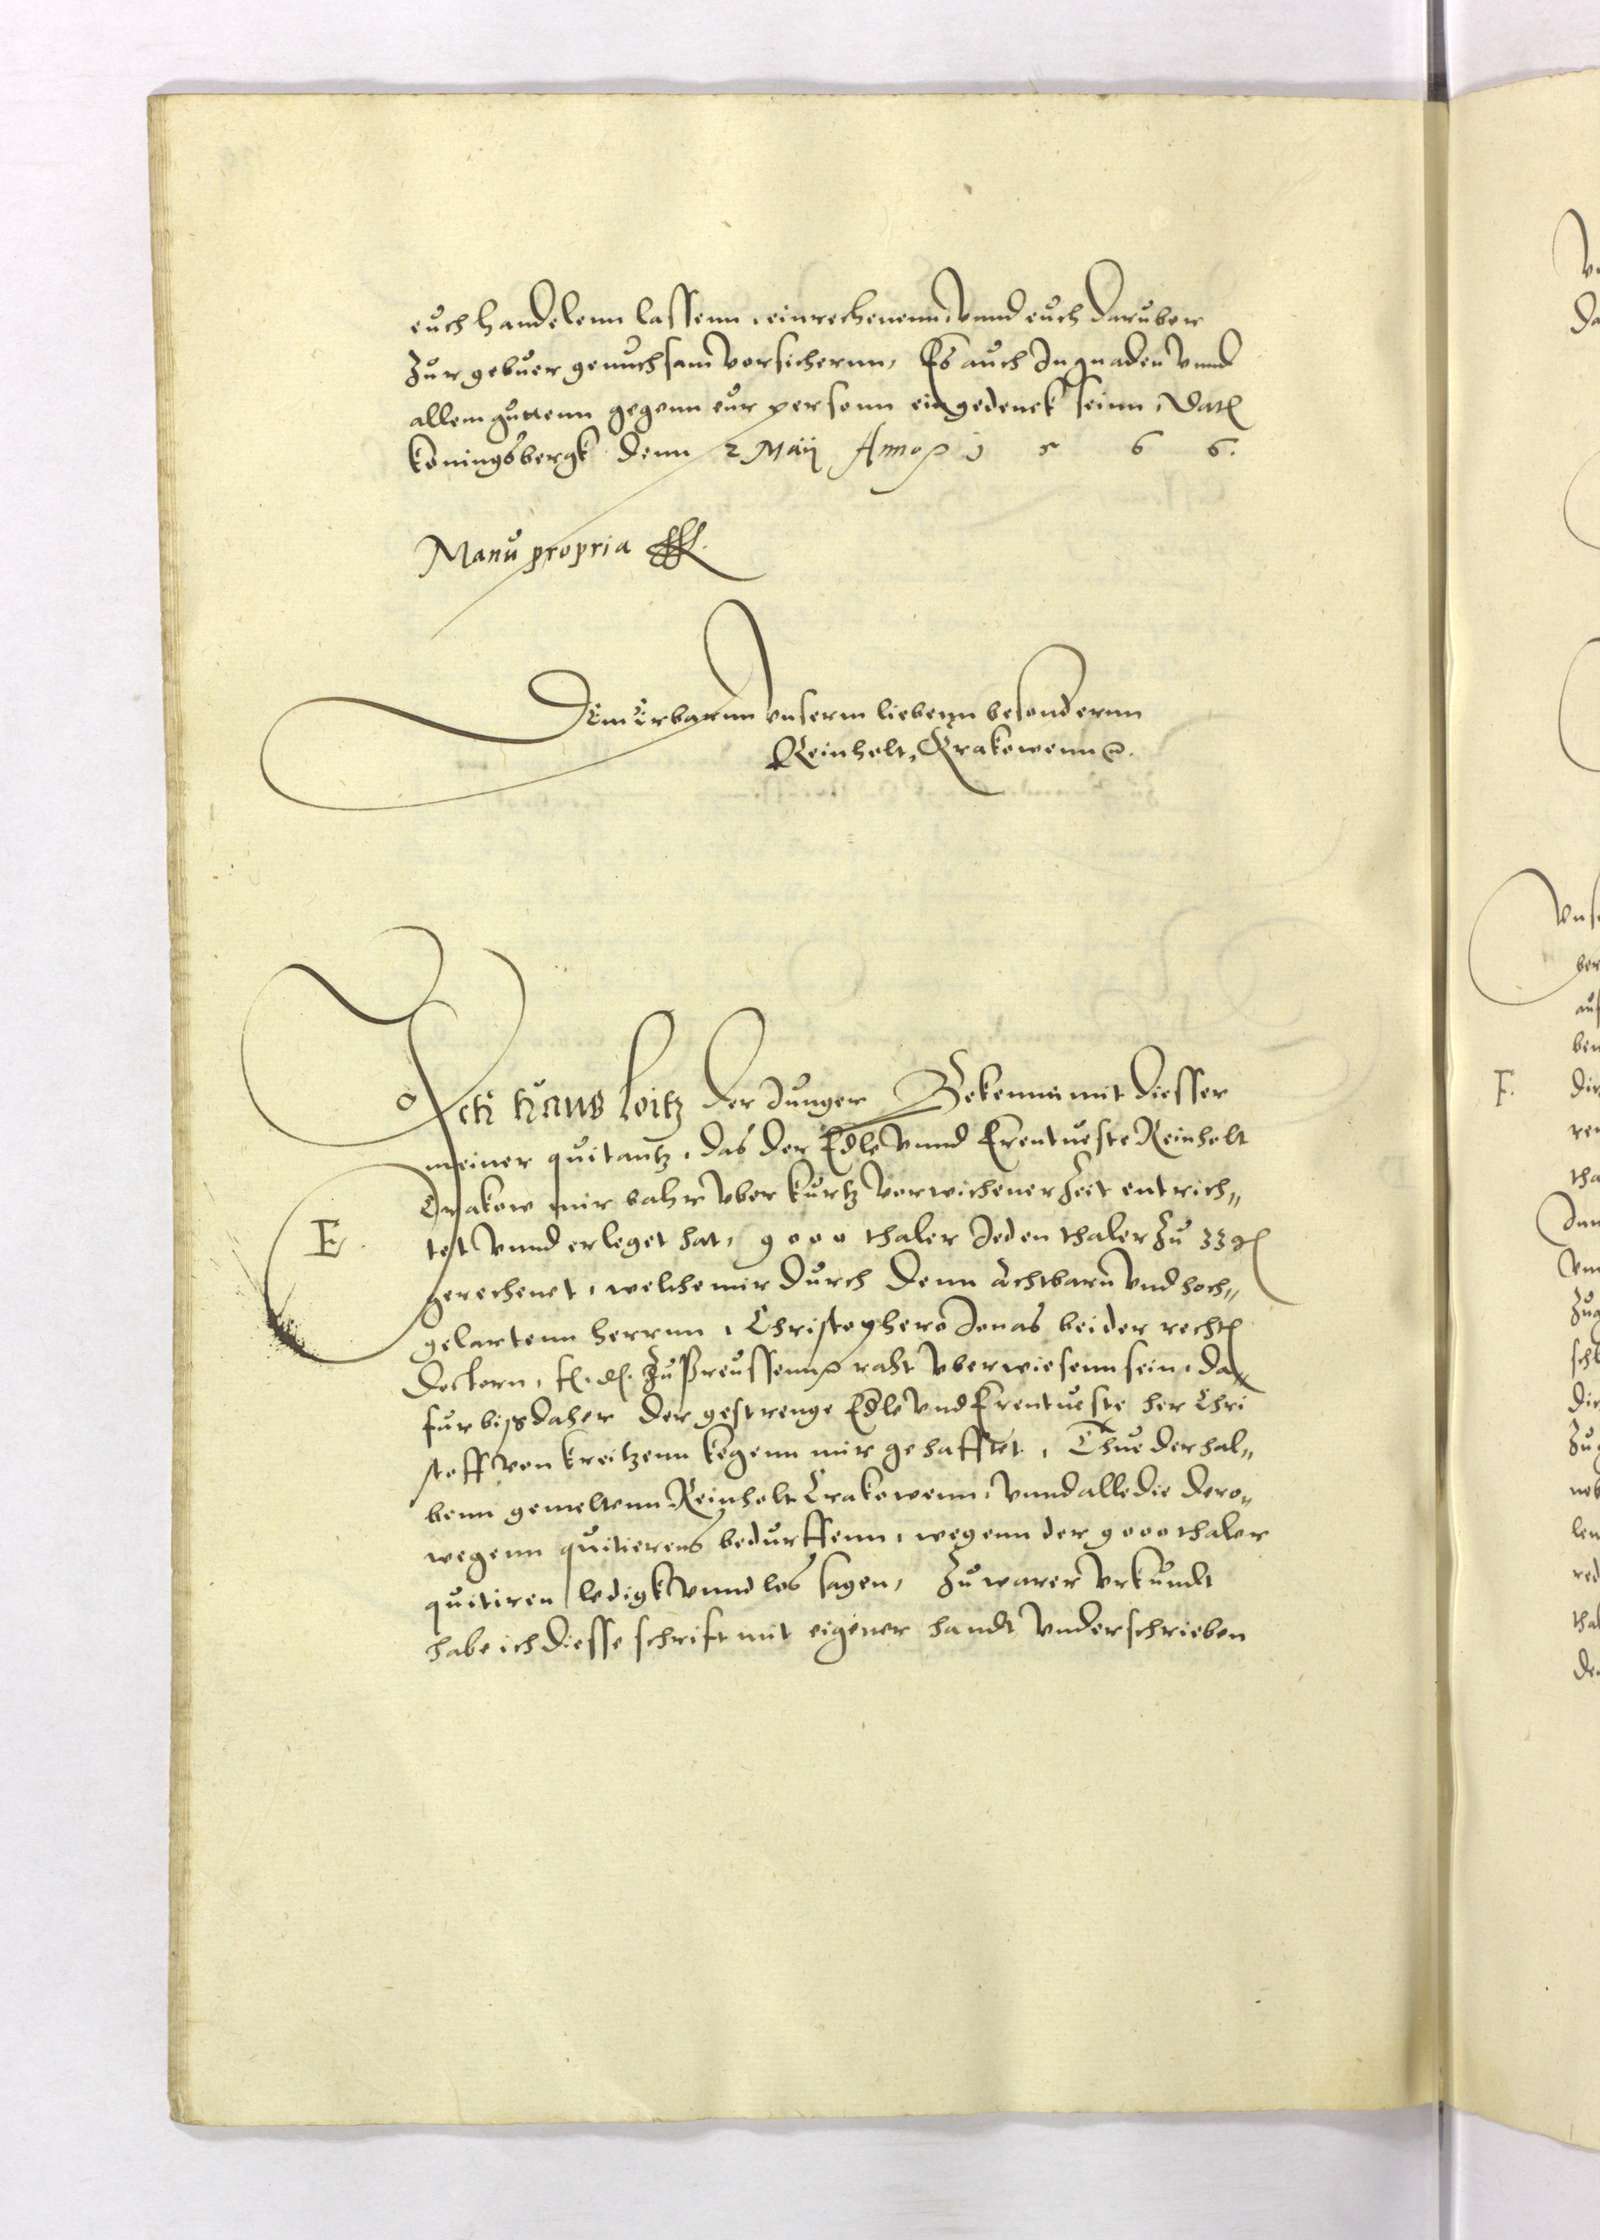 euch handelenn lassenn, einrechenenn, vnnd euch daruber
zur gebuer genuchsam vorsichernn, Es auch In gnaden vnnd
allem guttenn gegenn eur personn eingedenck seinn, Dat
koningsbergk denn 2 Maij Anno 1 5 6 6.
Manu propria
Dem Erbarnn vnserm liebenn besondernn
Reinholt, Krakowenn
Ich Hans Loitz der Junger Bekenne mit diesser
meiner quitantz, das der Edle vnnd Erentueste Reinholt
Crakow mir bahr vber kurtz vorwichener Zeit entrich„
E.
tet vnnd erleget hat, 9000 thaler Jeden thaler Zu 33 g
gerechenet, welche mir durch denn achtbarn vnd hoch„
gelartenn herrnn, Christophero Jonas beider recht
Doctorn, f. d. Zu Preussenn raht vberwiesenn sein, da
fur biss daher der gestrenge Edle vnd Erentueste her Chri
stoff von kreitzenn kegenn mir gehafftet, Thue derhal„
benn gemeltenn Reinholt Crakowenn, vnnd alle die dero„
wegenn quitierens bedurffenn, wegenn der 9000 thaler
quitiren ledigk vnnd los sagen, Zu warer vrkundt
habe ich diesse schrift mit eigener handt vnderschrieben
F.